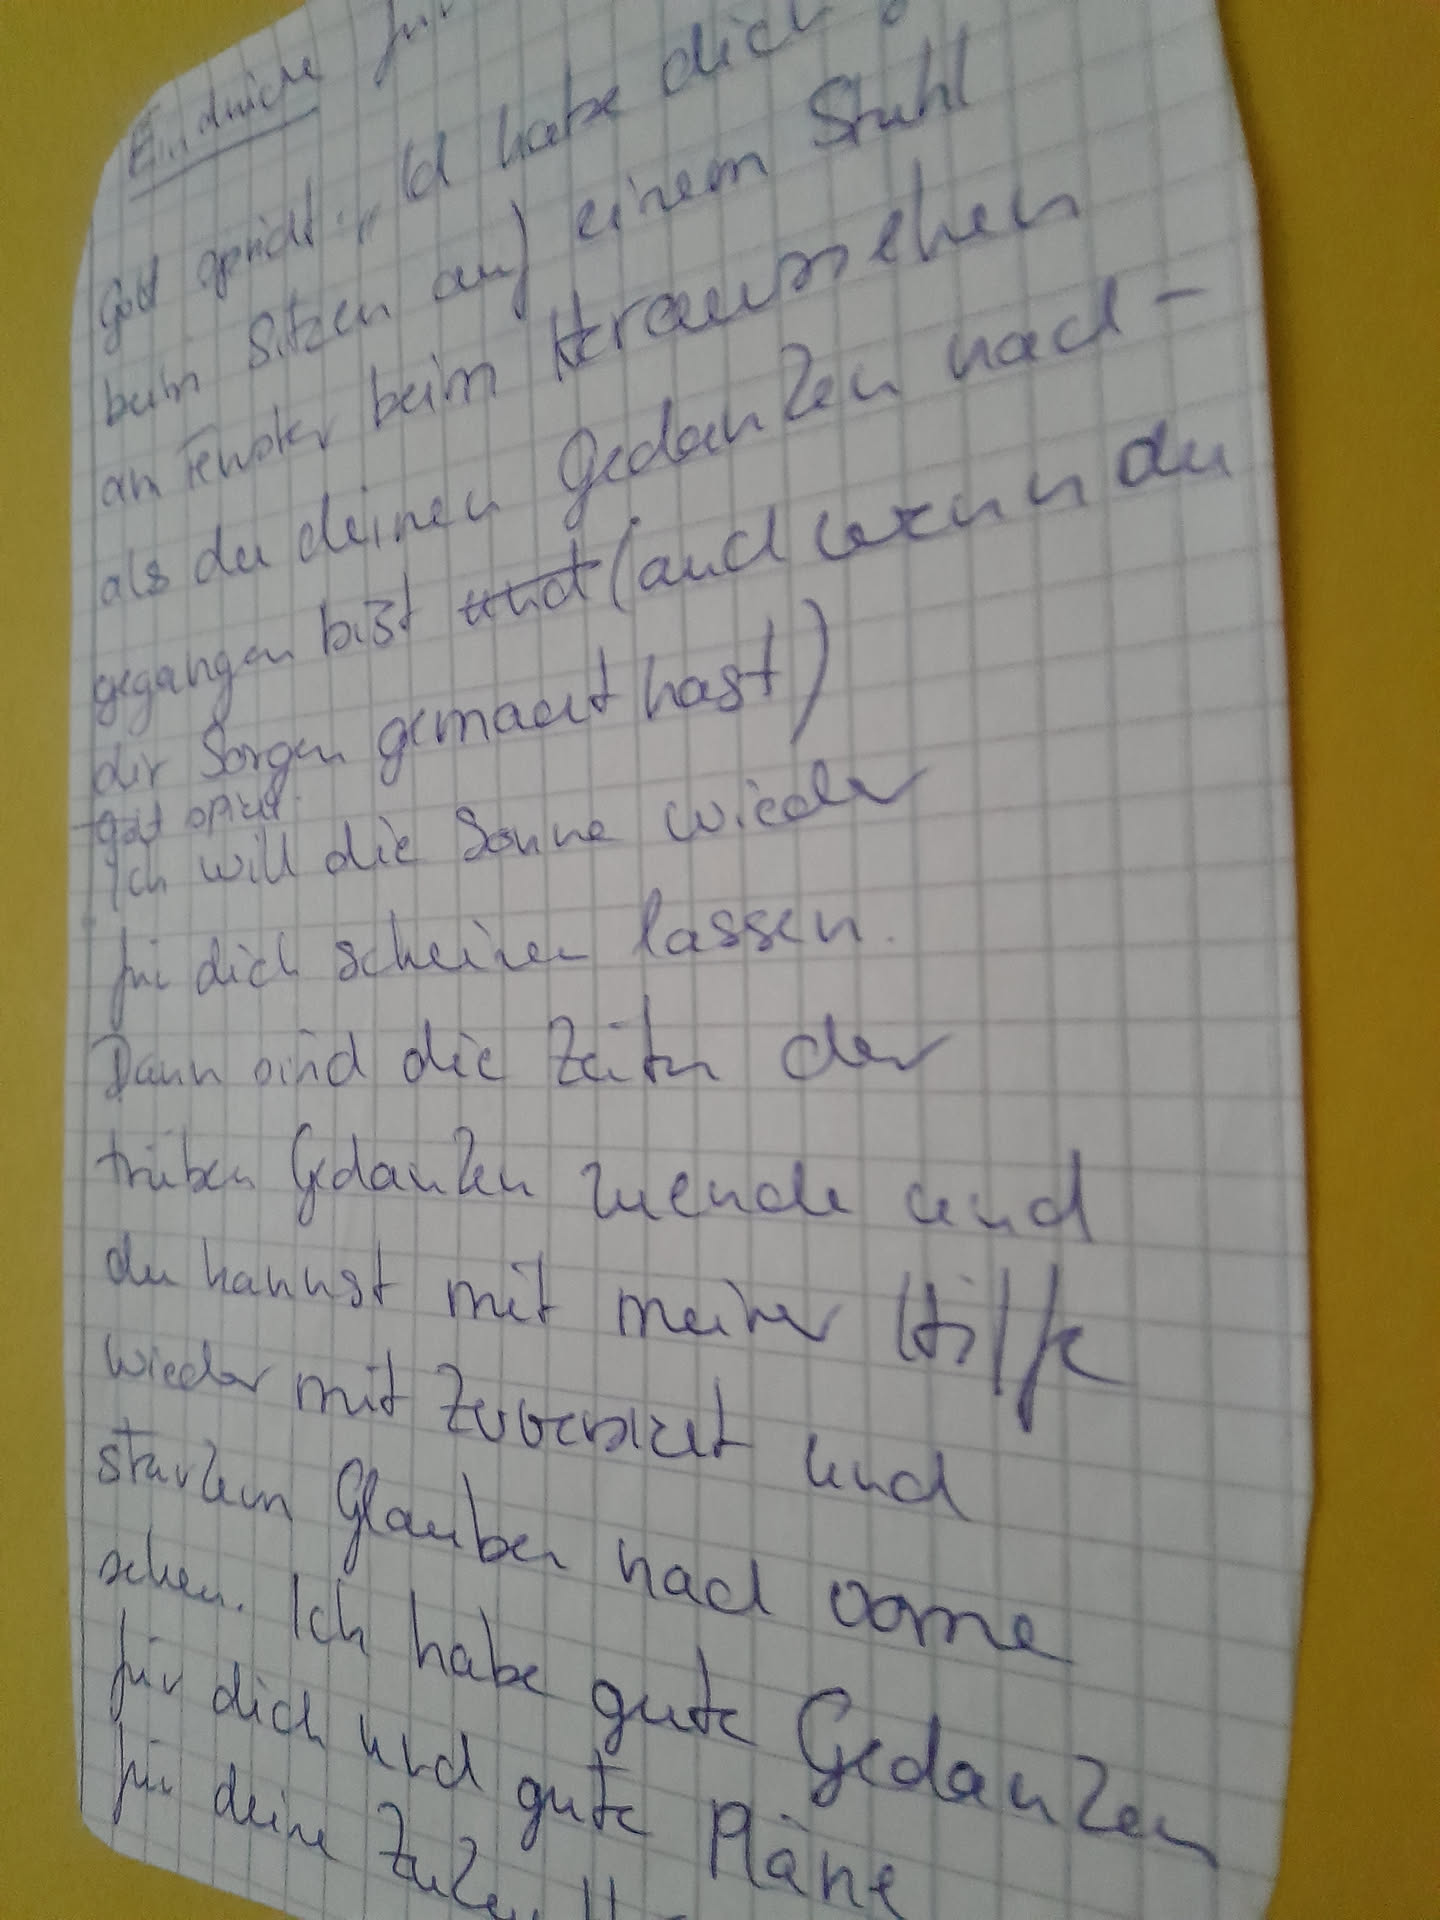 Eindrücke für
Gott spricht: "Ich habe dich
beim Sitzen auf einem Stuhl
am Fenster beim Heraussehen
als du deinen Gedanken nach-
gegangen bist und (auch wenn du
dir Sorgen gemacht hast)
Gott spricht:
Ich will die Sonne wieder
für dich scheinen lassen.
Dann sind die Zeiten der
trüben Gedanken zuende und
du kannst mit meiner Hilfe
wieder mit Zuversicht und
starkem Glauben nach vorne
sehen. Ich habe gute Gedanken
für dich und gute Pläne
für deine